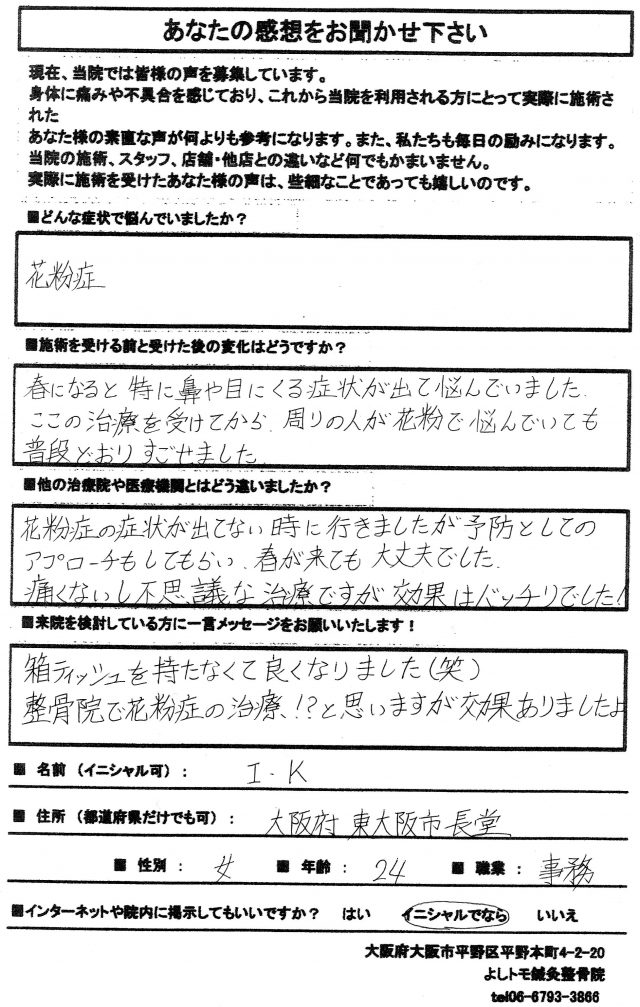 あなたの感想をお聞かせ下さい
現在、当院では皆様の声を募集しています。
身体に痛みや不具合を感じており、これから当院を利用される方にとって実際に施術さ
れた
あなた様の素直な声が何よりも参考になります。また、私たちも毎日の励みになります。
当院の施術、スタッフ、店舗・他店との違いなど何でもかまいません。
実際に施術を受けたあなた様の声は、些細なことであっても嬉しいのです。
■どんな症状で悩んでいましたか？
花粉症
■施術を受ける前と受けた後の変化はどうですか？
春になると 特に鼻や目にくる症状が出て悩んでいました.
ここの治療を受けてから、周りの人が花粉で悩んでいても
普段どおりすごせました.
■他の治療院や医療機関とはどう違いましたか？
花粉症の症状が出てない時に行きましたが予防としての
アプローチもしてもらい、春が来ても大丈夫でした.
痛くないし不思議な治療ですが効果はバッチリでした!
■来院を検討している方に一言メッセージをお願いいたします！
箱ティッシュを持たなくて良くなりました(笑)
整骨院で花粉症の治療、!?と思いますが効果ありましたよ
■ 名前（イニシャル可）： I.K
■ 住所（都道府県だけでも可）： 大阪府 東大阪市長堂
■ 性別： 女 ■ 年齢： 24 ■ 職業： 事務
■インターネットや院内に掲示してもいいですか？ はい イニシャルでなら いいえ
大阪府大阪市平野区平野本町4-2-20
よしトモ鍼灸整骨院
tel06-6793-3866